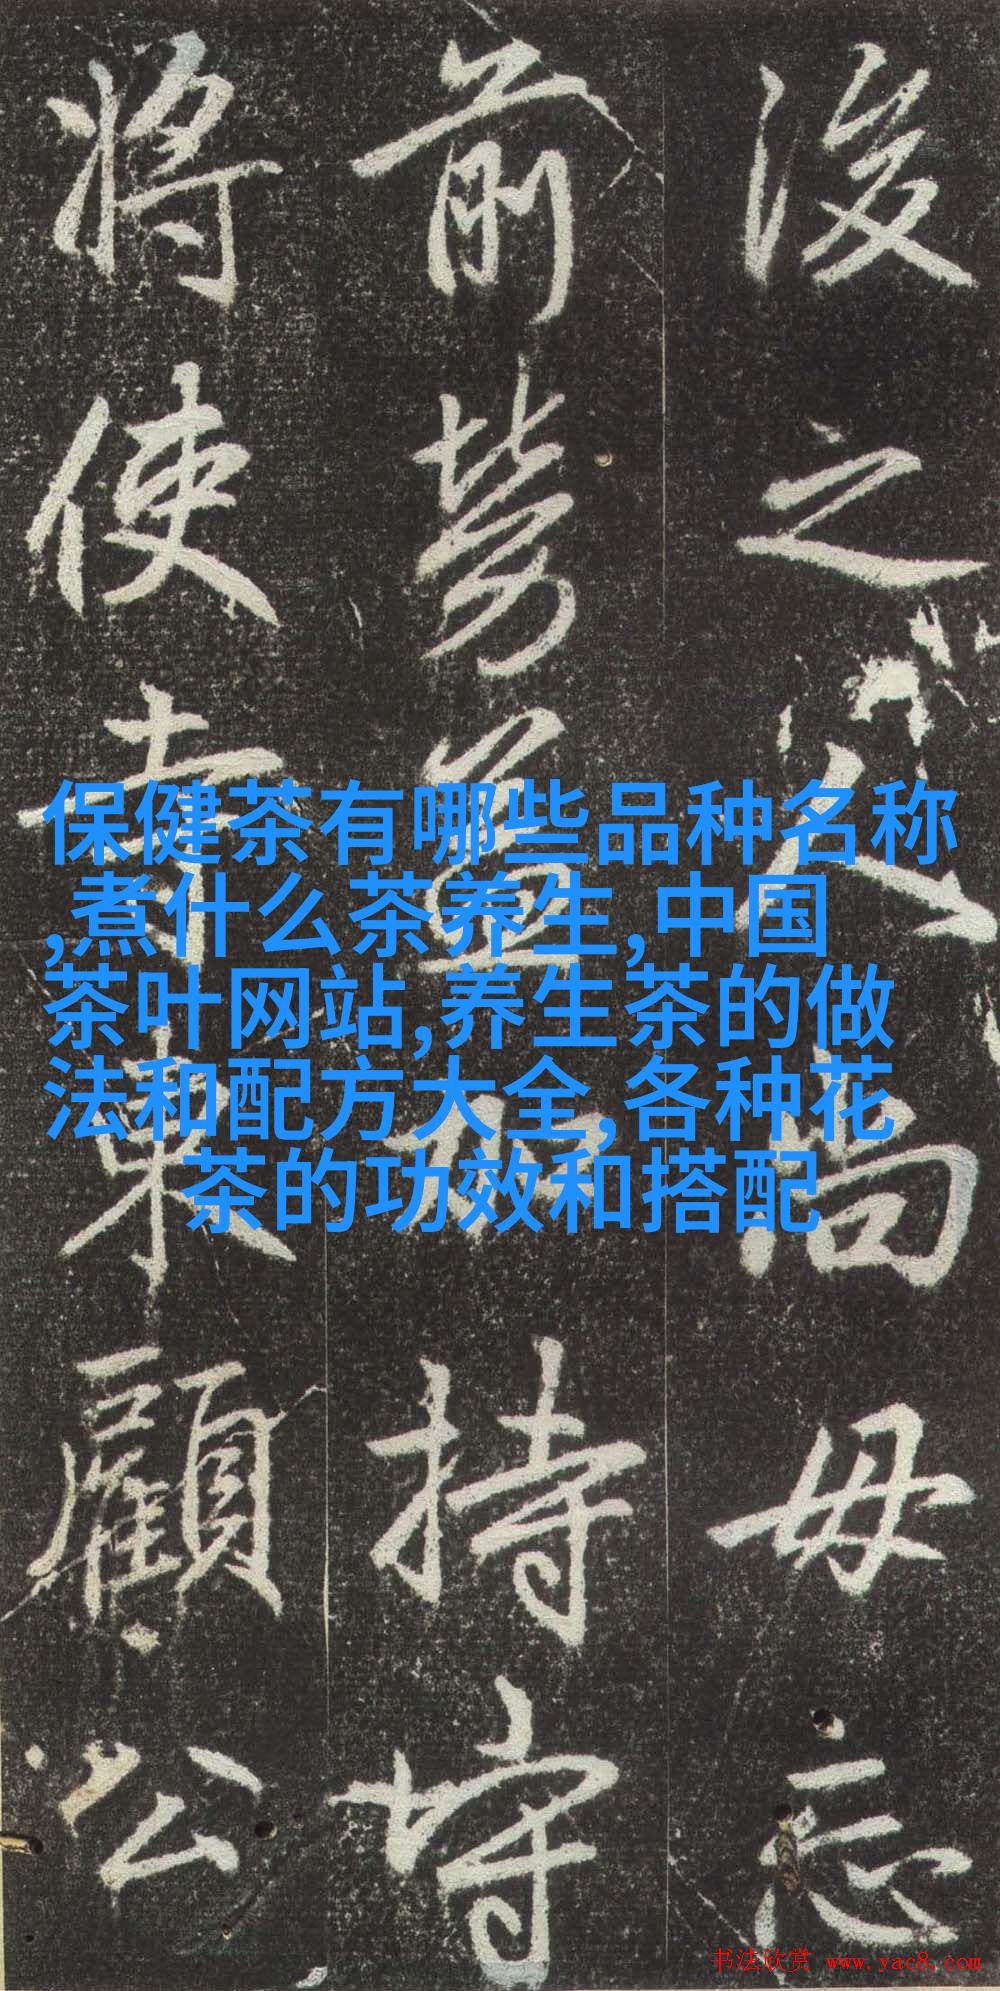 保健茶有哪些品种名称
,煮什么茶养生,中国
茶叶网站,养生茶的做
法和配方大全,各种花
茶的功效和搭配
後之人尚毋忘
前勞益加持守
將使東顧公
书法欣赏 www.yac8.com